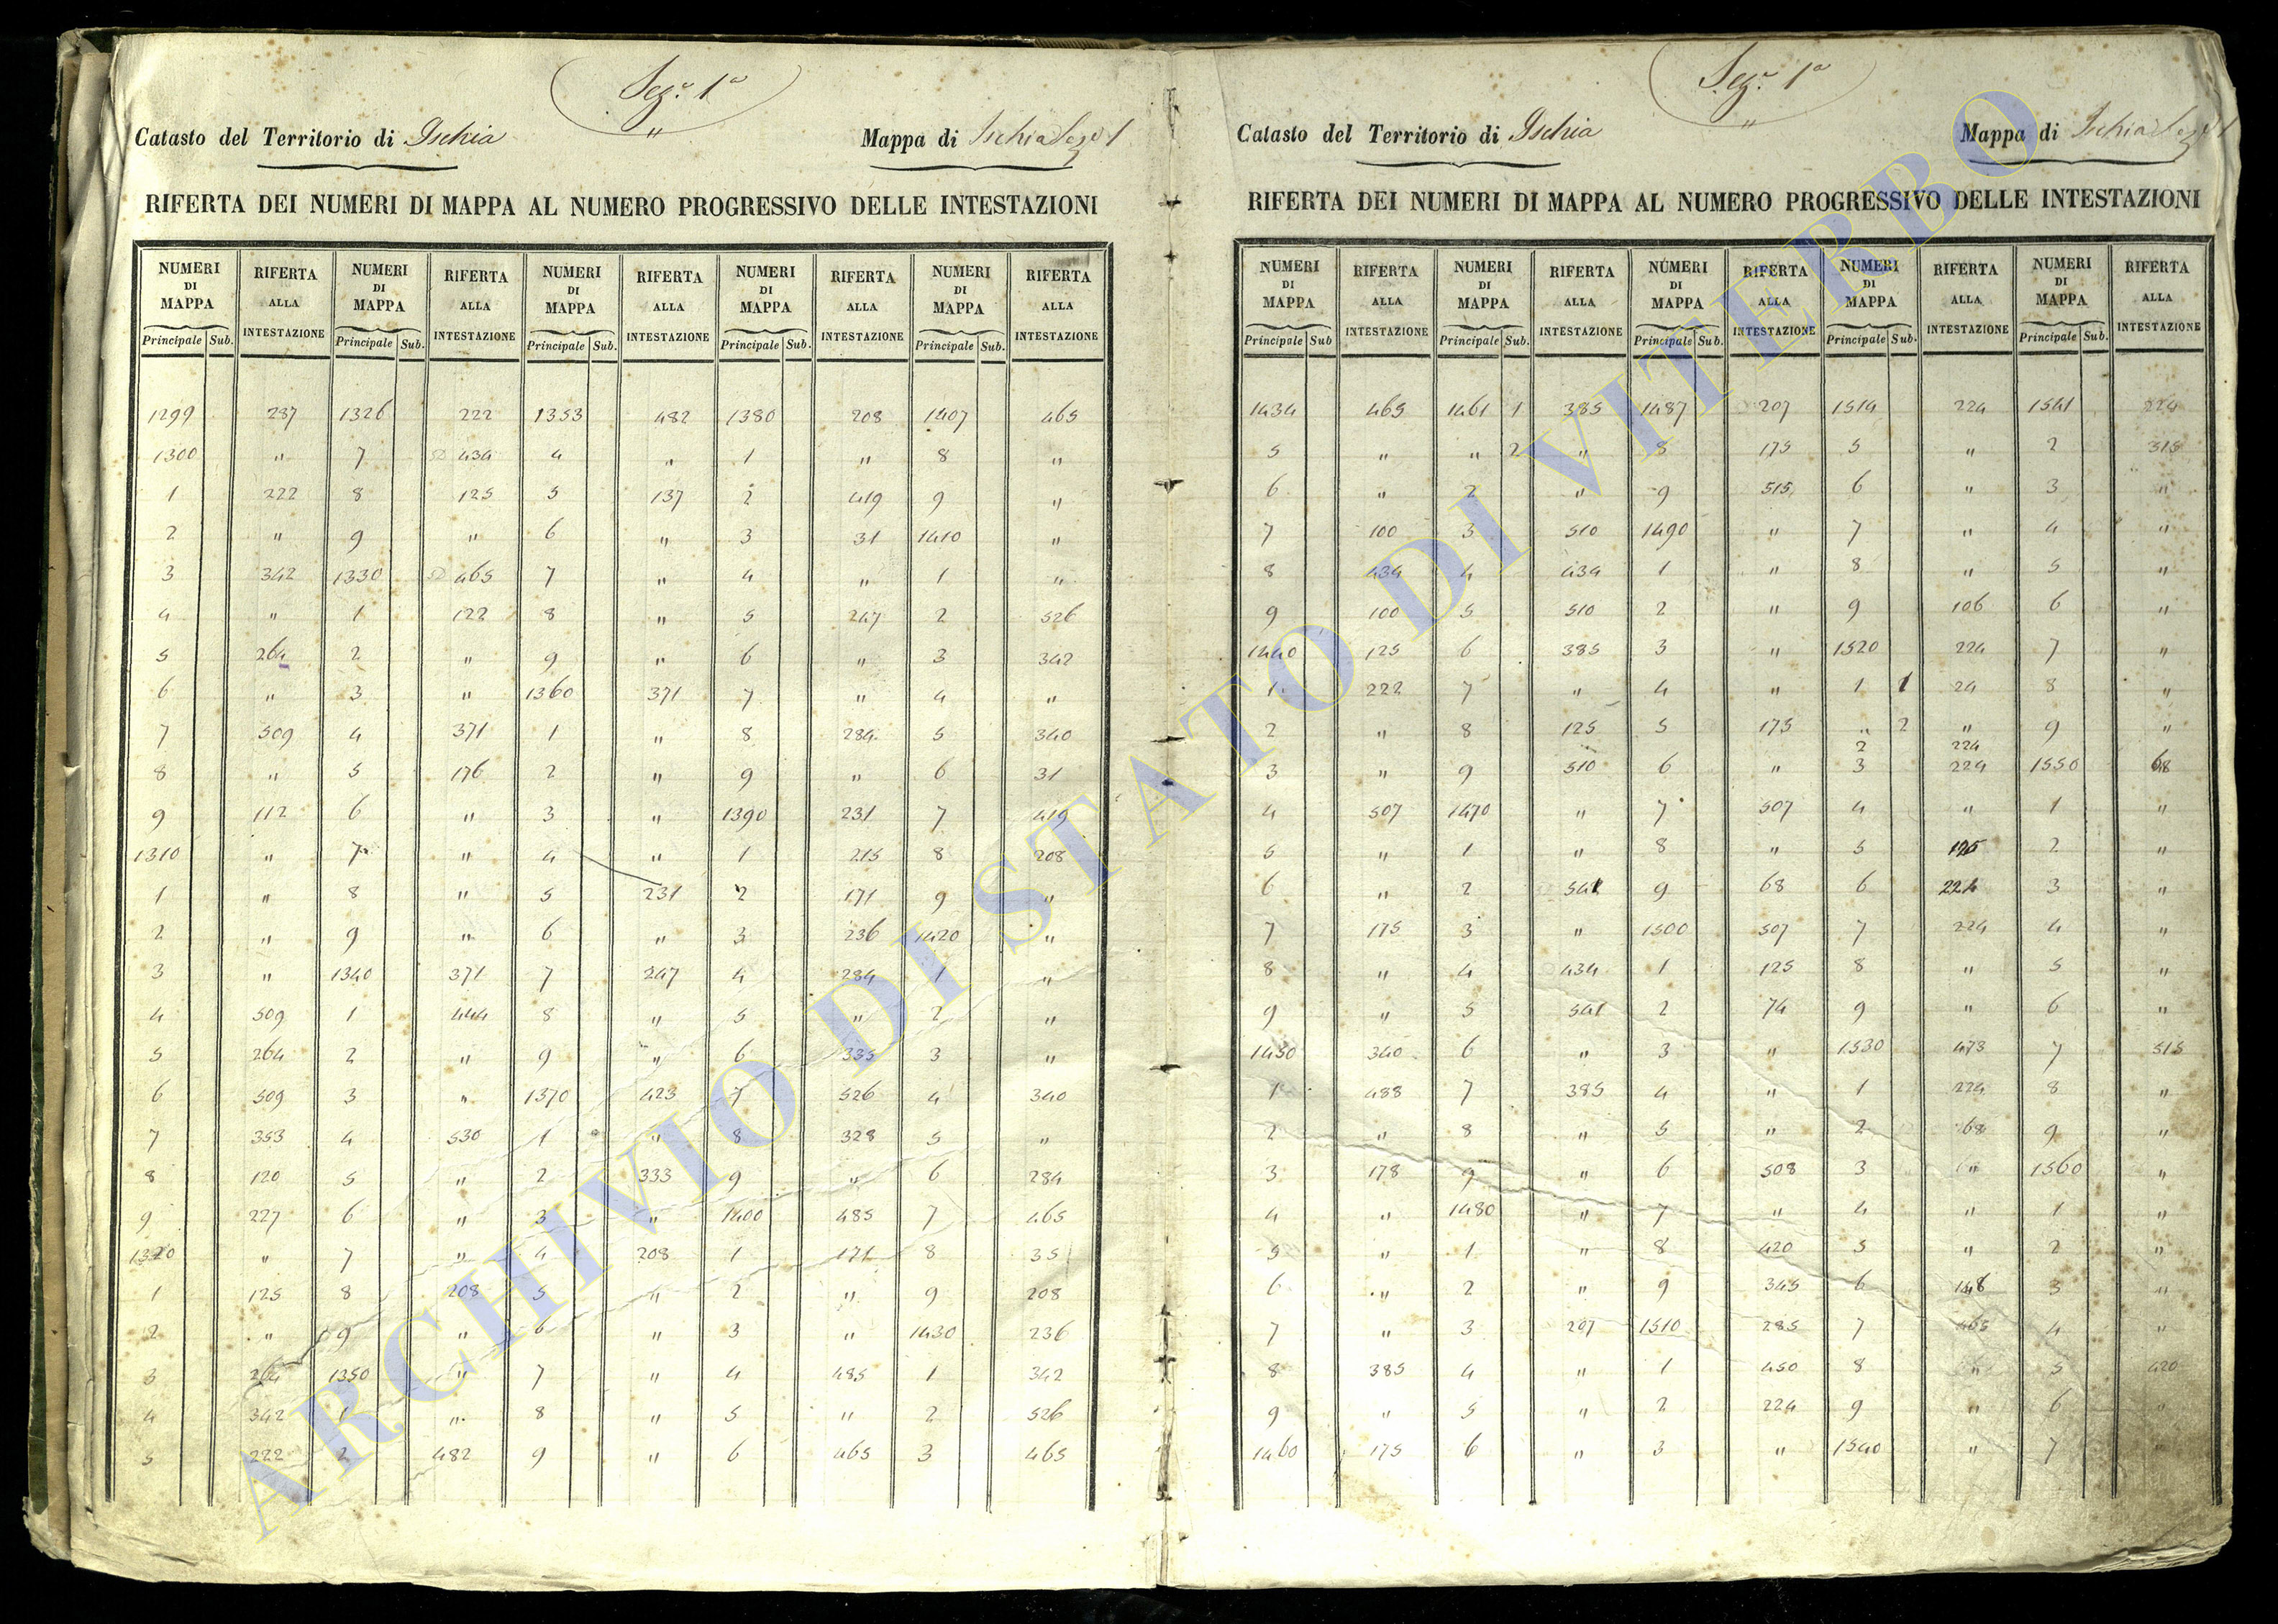 Sez.e 1a
"
Catasto del Territorio di Ischia Mappa di Ischia Sez.e 1
RIFERTA DEI NUMERI DI MAPPA AL NUMERO PROGRESSIVO DELLE INTESTAZIONI
NUMERI DI MAPPA RIFERTA ALLA INTESTAZIONE NUMERI DI MAPPA RIFERTA ALLA INTESTAZIONE NUMERI DI MAPPA RIFERTA ALLA INTESTAZIONE NUMERI DI MAPPA RIFERTA ALLA INTESTAZIONE NUMERI DI MAPPA RIFERTA ALLA INTESTAZIONE
Principale Sub. Principale Sub. Principale Sub. Principale Sub. Principale Sub.
1299 287 1326 222 1353 482 1380 208 1407 465
1300 " 7 434 4 " 1 " 8 "
1 222 8 125 5 137 2 419 9 "
2 " 9 " 6 " 3 31 1410 "
3 342 1330 465 7 " 4 " 1 "
4 " 1 122 8 " 5 247 2 526
5 264 2 " 9 " 6 " 3 342
6 " 3 " 1360 371 7 " 4 "
7 509 4 371 1 " 8 284 5 340
8 " 5 176 2 " 9 " 6 31
9 112 6 " 3 " 1390 231 7 419
1310 " 7 " 4 " 1 215 8 208
1 " 8 " 5 231 2 171 9 "
2 " 9 " 6 " 3 236 1420 "
3 " 1340 371 7 247 4 284 1 "
4 509 1 444 8 " 5 " 2 "
5 264 2 " 9 " 6 335 3 "
6 509 3 " 1370 423 7 526 4 340
7 353 4 530 1 " 8 328 5 "
8 120 5 " 2 333 9 " 6 284
9 227 6 " 3 " 1400 485 7 465
1320 " 7 " 4 208 1 171 8 35
1 125 8 208 5 " 2 " 9 208
2 " 9 " 6 " 3 " 1430 236
3 264 1350 " 7 " 4 485 1 342
4 342 1 " 8 " 5 " 2 526
5 222 2 482 9 " 6 465 3 465
Sez.e 1a
"
Catasto del Territorio di Ischia Mappa di Ischia Sez.e 1
RIFERTA DEI NUMERI DI MAPPA AL NUMERO PROGRESSIVO DELLE INTESTAZIONI
NUMERI DI MAPPA RIFERTA ALLA INTESTAZIONE NUMERI DI MAPPA RIFERTA ALLA INTESTAZIONE NUMERI DI MAPPA RIFERTA ALLA INTESTAZIONE NUMERI DI MAPPA RIFERTA ALLA INTESTAZIONE NUMERI DI MAPPA RIFERTA ALLA INTESTAZIONE
Principale Sub Principale Sub. Principale Sub. Principale Sub. Principale Sub.
1434 465 1461 1 385 1487 207 1514 224 1541 224
5 " " 2 " 8 175 5 " 2 315
6 " 2 " 9 515 6 " 3 "
7 100 3 510 1490 " 7 " 4 "
8 434 4 434 1 " 8 " 5 "
9 100 5 510 2 " 9 106 6 "
1440 125 6 385 3 " 1520 224 7 "
1 222 7 " 4 " 1 1 24 8 "
2 " 8 125 5 175 " 2 " 9 "
2 224
3 " 9 510 6 " 3 224 1550 68
4 507 1470 " 7 507 4 " 1 "
5 " 1 " 8 " 5 125 2 "
6 " 2 541 9 68 6 224 3 "
7 175 3 " 1500 507 7 224 4 "
8 " 4 434 1 125 8 " 5 "
9 " 5 541 2 74 9 " 6 "
1450 340 6 " 3 " 1530 473 7 515
1 488 7 385 4 " 1 224 8 "
2 " 8 " 5 " 2 68 9 "
3 178 9 " 6 508 3 " 1560 "
4 " 1480 " 7 " 4 " 1 "
5 " 1 " 8 420 5 " 2 "
6 " 2 " 9 345 6 148 3 "
7 " 3 207 1510 285 7 465 4 "
8 385 4 " 1 450 8 " 5 420
9 " 5 " 2 224 9 " 6 "
1460 175 6 " 3 " 1540 " 7 "
ARCHIVIO DI STATO DI VITERBO